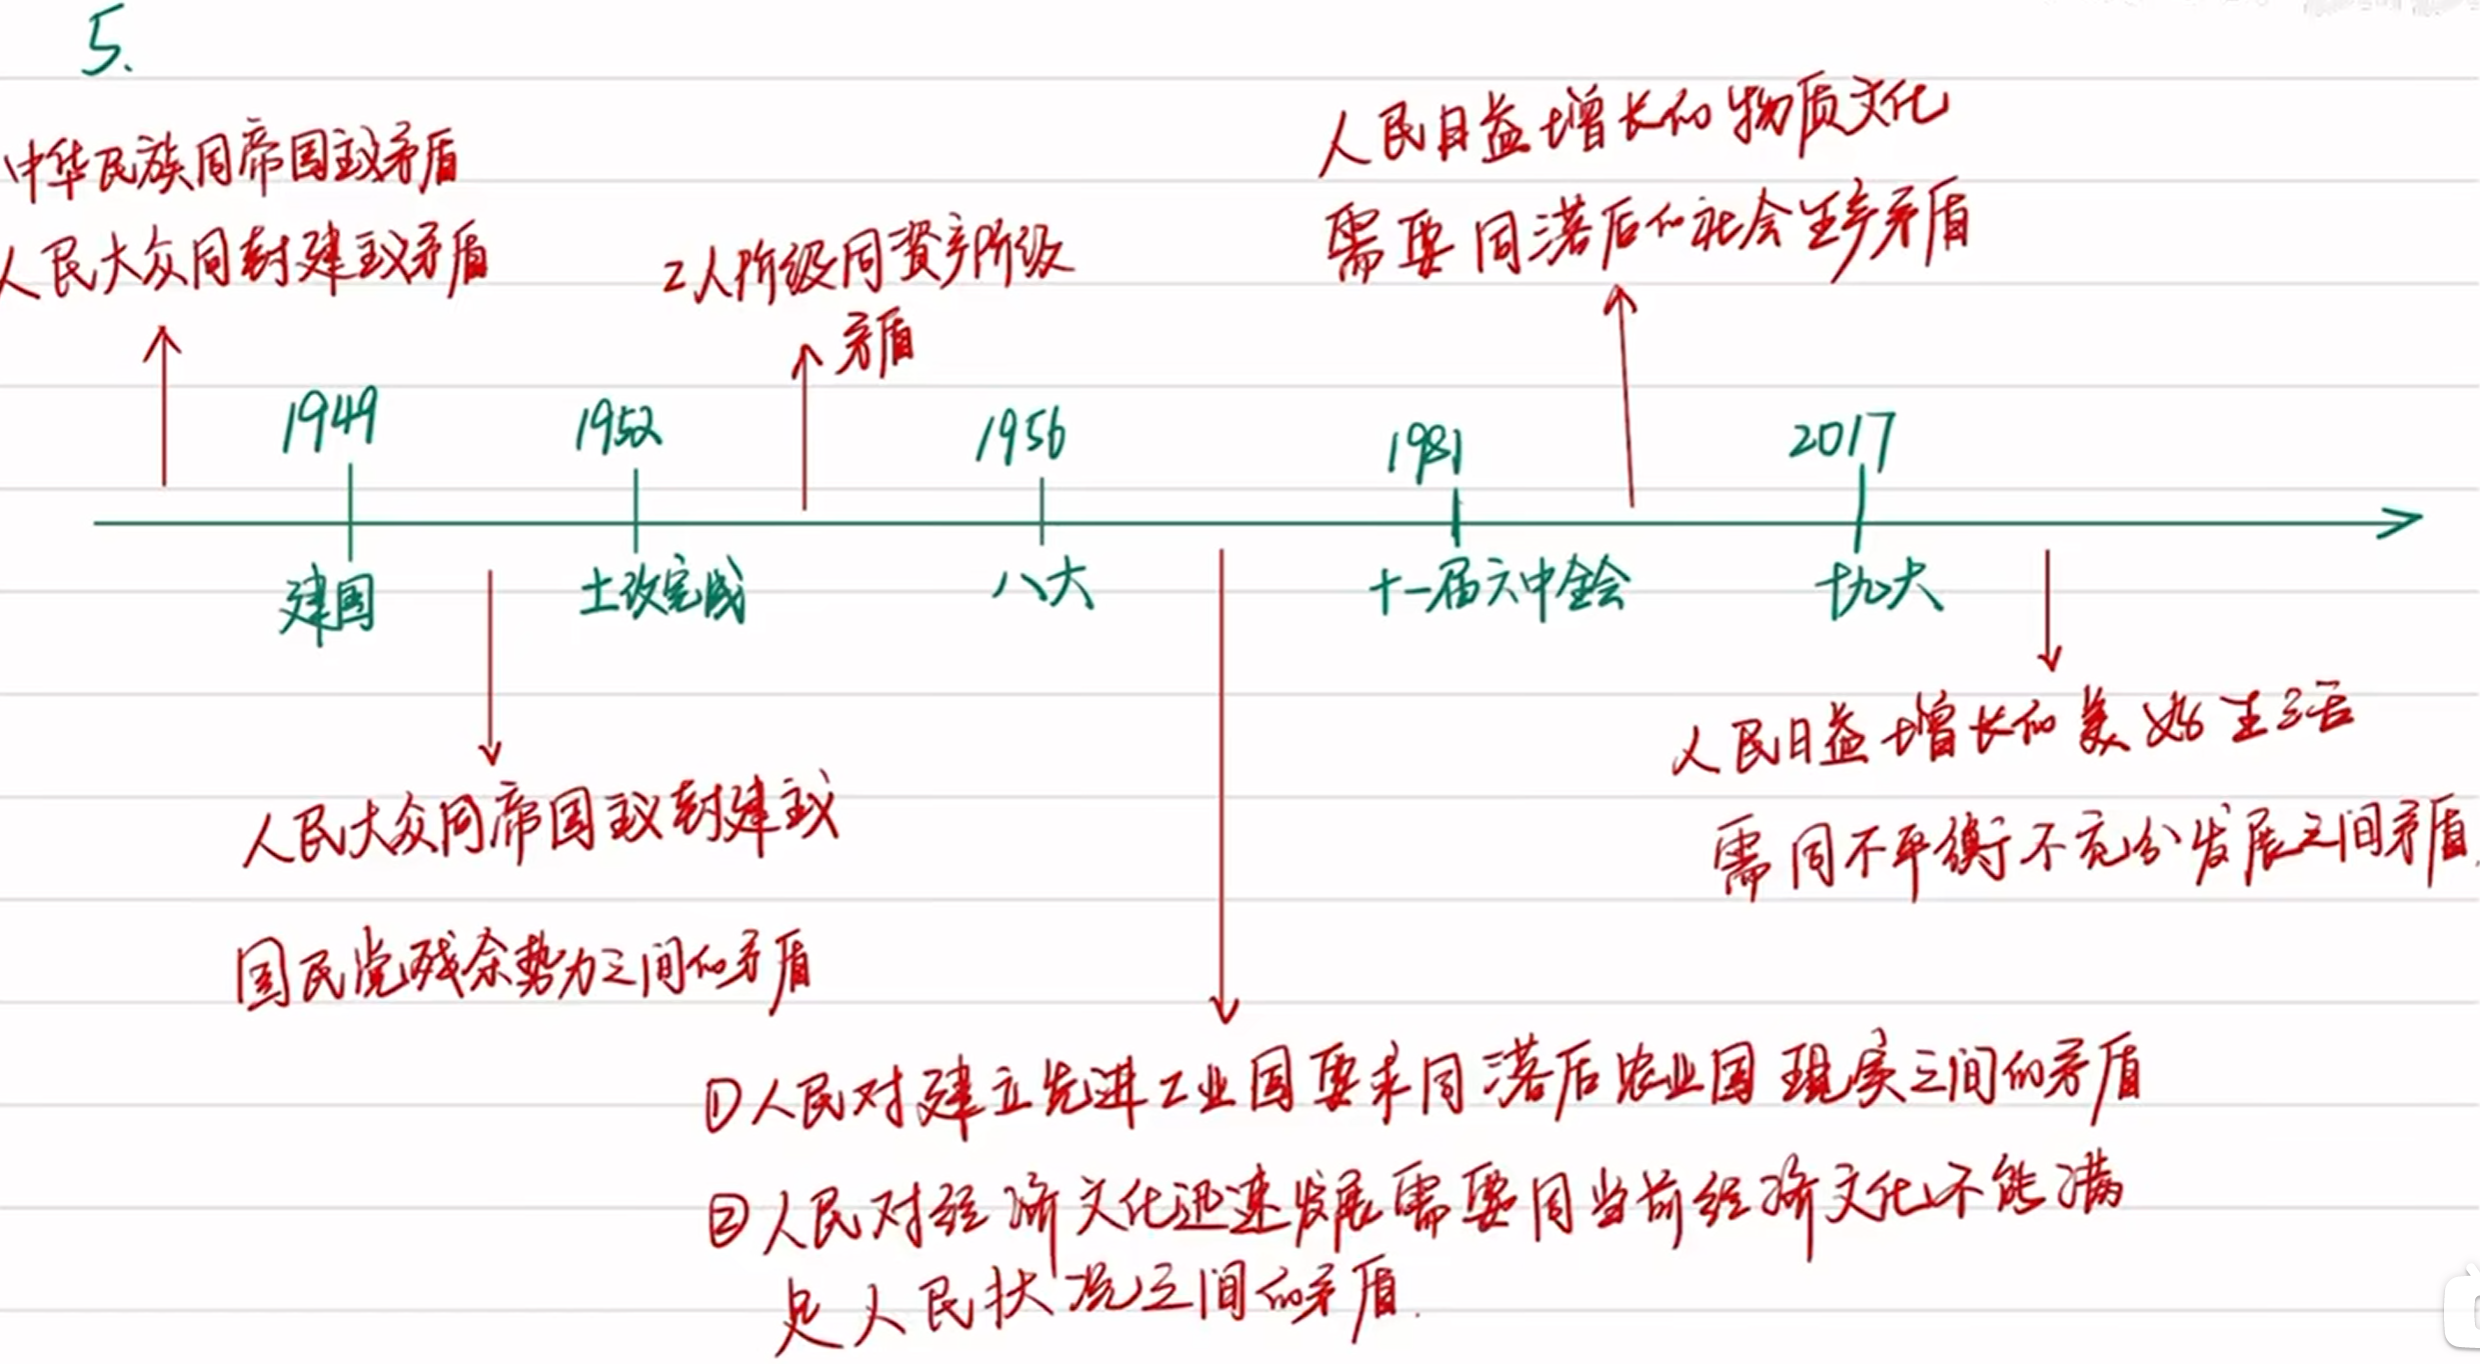 5.
中华民族同帝国主义矛盾
人民大众同封建主义矛盾
工人阶级同资产阶级
矛盾
人民日益增长的物质文化
需要同落后的社会生产矛盾
1949
1952
1956
1981
2017
建国
土改完成
八大
十一届六中全会
十九大
人民大众同帝国主义封建主义
国民党残余势力之间的矛盾
人民日益增长的美好生活
需同不平衡不充分发展之间矛盾.
①人民对建立先进工业国要求同落后农业国现实之间的矛盾
②人民对经济文化迅速发展需要同当前经济文化不能满
足人民状况之间的矛盾.